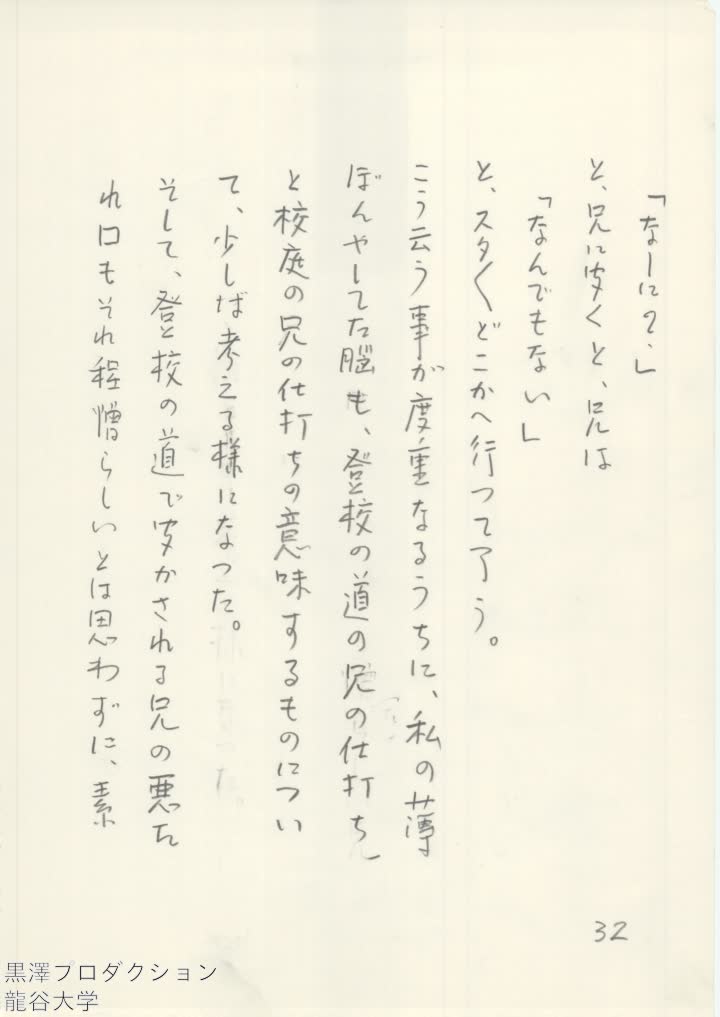 「なーに？」
と、兄に聞くと、兄は
「なんでもない」
と、スタ〱どこかへ行つて了う。
こう云う事が度重なるうちに、私の薄
ぼんやしてた脳も、登校の道の兄の仕打ち
と校庭の兄の仕打ちの意味するものについ
て、少しば考える様になつた。
そして、登校の道で聞かされる兄の悪た
れ口もそれ程憎らしいとは思わずに、素
32
黒澤プロダクション
龍谷大学